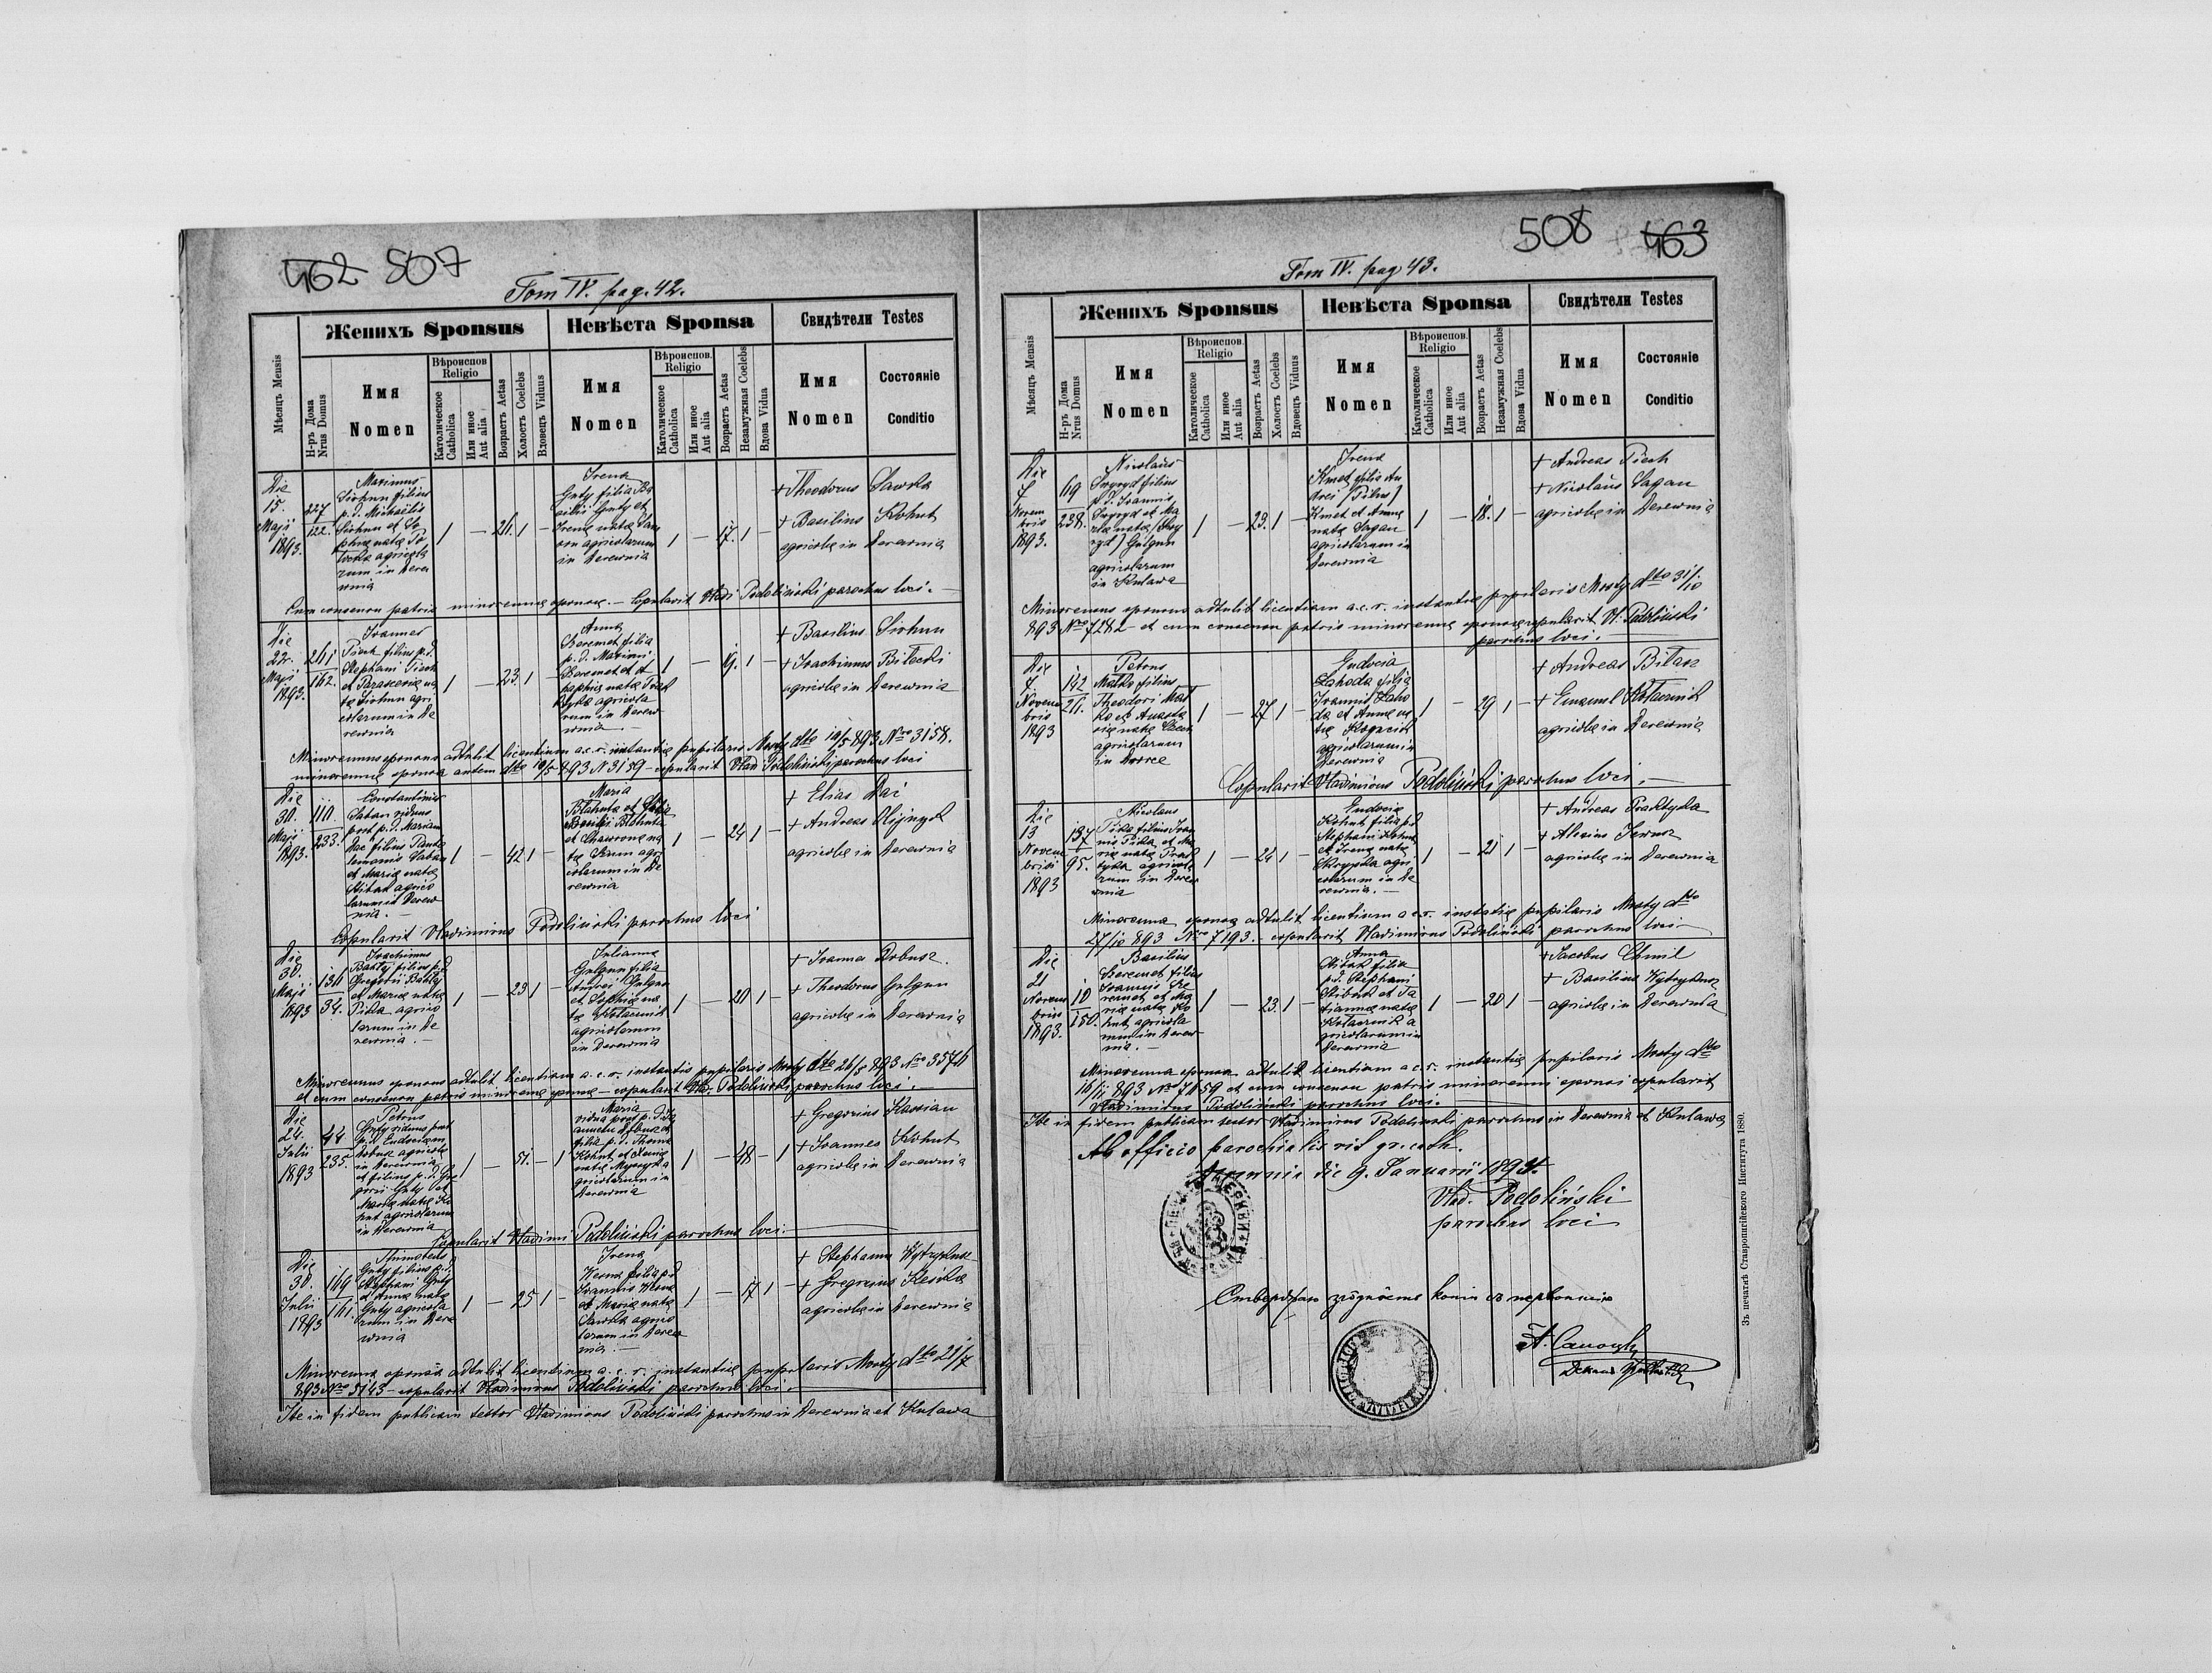 462 507
Tom IV. pag. 42.
Женихъ Sponsus
Невѣста Sponsa
Свидѣтели Testes
Мѣсяцъ Mensis
Н-ръ Дома
Nrus Domus
Имя
Nomen
Вѣроиспов.
Religio
Католическое
Catholica
Или иное
Aut alia
Возрастъ Aetas
Холостъ Coelebs
Вдовецъ Viduus
Имя
Nomen
Вѣроиспов.
Religio
Католическое
Catholica
Или иное
Aut alia
Возрастъ Aetas
Незамужная Coelebs
Вдова Vidua
Имя
Nomen
Состояніе
Conditio
Die
15.
Maji
1893.
227
122.
Maximus
filius
p. d. Michaëlis
et So
phiæ natæ
agricola
rum in Derew
nia
1 — 26. 1 —
Irena
Gnty filia Ba
silii Gnty et
Irenæ natæ
agricolarum
in Derewnia
1 — 17. 1 —
+ Theodorus Sawka
+ Basilius Kohut
agricolæ in Derewnia
Cum consensu patris minorennæ sponsæ. — Copulavit Vladi Podoliński parochus loci. —
Die
22.
Maji
1893.
261
162.
Joannes
Piech filius p. d.
Stephani Piech
et Parasceviæ na
tæ agri
colarum in De
rewnia
1 — 23. 1 —
Anna
Beremet filia
p. d. Maximi
Beremet et A
gaphiæ natæ Prak
tyka agricola
rum in Derew
nia. —
1 — 19. 1 —
+ Basilius
+ Joachimus Bilecki
agricolæ in Derewnia
Minorennus sponsus adtulit licentiam a. c. r. instantiæ pupilaris Mosty dto 10/5 893 Nro 3158.
minorennæ sponsæ autem dto 10/5 893 N 3159 — copulavit Vlad Podoliński parochus loci
Die
30.
Maji
1893.
110.
233.
Constantinus
Saban viduus
post p. d. Mariam
Dac filius Panta
leimonis Saban
et Mariæ natæ
Hibak agrico
larum in Derew
nia. —
1 — 42 1 —
Maria
Blahuta et filia
Basilii Blahuta
et na
tæ agri
colarum in De
rewnia
1 — 24 1 —
+ Elias Dac
+ Andreas
agricolæ in Derewnia
Copulavit Vladimirus Podoliński parochus loci
Die
30.
Maji
1893
136
34.
Joachimus
Baxty filius p. d.
Gregorii Baxty
et Mariæ natæ
Pika agrico
larum in De
rewnia. —
1 — 23 1
Julianna
Gulgun filia
Andrei Gulgun
et Sophiæ na
tæ Kołacznik
agricolarum
in Derewnia
1 — 20 1 —
+ Joannes Dobusz.
+ Theodorus Gulgun
agricolæ in Derewnia
Minorennus sponsus adtulit licentiam a. c. r. instantiæ pupilaris Mosty dto 26/5 893 Nro 3576
et cum consensu patris minorennæ sponsæ — copulavit Vlad. Podoliński parochus loci. —
Die
24.
Julii
1893
44
235.
Petrus
Gnty viduus post
p. d. Eudociam
Dobusz agricola
in Derewnia
et filius p. d. Gre
gorii Gnty et
Mariæ natæ Ko
hut agricolarum
in Derewnia
1 — 51. — 1
Maria
vidua post p. d. Jo
annem Dobusz et
filia p. d. Thomæ
Kohut et Xeniæ
natæ a
gricolarum in
Derewnia
1 — 48 — 1
+ Gregorius Kassian
+ Joannes Kohut
agricolæ in Derewnia
Copulavit Vladimi Podoliński parochus loci.
Die
30.
Julii
1893
169
161.
Thimoteus
Gnty filius p. d.
Stephani Gnty
et Annæ natæ
Gnty agricola
rum in Dere
wnia
1 — 25 1 —
Irena
Wesna filia p. d.
Joannis Wesna
et Mariæ natæ
Sawka agrico
larum in Derew
nia. —
1 — 17 1 —
+ Stephanus Wytrykusz
+ Gregorius
agricolæ in Derewnia
Minorenna sponsa adtulit licentiam a. c. r. instantiæ pupilaris Mosty dto 21/7
893 Nro 5143 — copulavit Vladimirus Podoliński parochus loci. —
Ite in fidem publicam testor Vladimirus Podoliński parochus in Derewnia et Kulawa
508 463
Tom IV. pag 43.
Женихъ Sponsus
Невѣста Sponsa
Свидѣтели Testes
Мѣсяцъ Mensis
Н-ръ Дома
Nrus Domus
Имя
Nomen
Вѣроиспов.
Religio
Католическое
Catholica
Или иное
Aut alia
Возрастъ Aetas
Холостъ Coelebs
Вдовецъ Viduus
Имя
Nomen
Вѣроиспов.
Religio
Католическое
Catholica
Или иное
Aut alia
Возрастъ Aetas
Незамужная Coelebs
Вдова Vidua
Имя
Nomen
Состояніе
Conditio
Die
7
Novem
bris
1893.
69
238.
Nicolaus
filius
p. d. Joannis
et Ma
riæ natæ
Gulgun
agricolarum
in Kulawa
1 — 23. 1 —
Irena
Kmet filia An
drei [Pilus]
Kmet et Annæ
natæ Sagan
agricolarum in
Derewnia
1 — 18. 1 —
+ Andreas Piech
+ Nicolaus Sagan
agricolæ in Derewnia
Minorennus sponsus adtulit licentiam a. c. r. instantiæ pupilaris Mosty dto 31/10
893 Nro 7282 — et cum consensu patris minorennæ sponsæ copulavit Vl. Podoliński
parochus loci. —
Die
7
Novem
bris
1893
192
26.
Petrus
Matko filius
Theodori Mat
ko et Anasta
siæ natæ
agricolarum
in Dworce
1 — 27 1 —
Eudocia
Lahoda filia
Joannis Laho
da et Annæ na
tæ
agricolarum in
Derewnia
1 — 29 1 —
+ Andreas Bilas
+ Emanuel Kołacznik
agricolæ in Derewnia
Copulavit Vladimirus Podoliński parochus loci. —
Die
13
Novem
bris
1893
137
95.
Nicolaus
Pika filius Joan
nis Pika et Ma
riæ natæ Prak
tyka agricola
rum in Derew
nia
1 — 24 1 —
Eudocia
Kohut filia p. d.
Stephani Kohut
et Irenæ natæ
Skrypka agri
colarum in De
rewnia. —
1 — 21 1 —
+ Andreas Praktyka
+ Alexius
agricolæ in Derewnia
Minorenna sponsa adtulit licentiam a c. r. instatiæ pupilaris Mosty dto
27/10 893 Nro 7193. — copulavit Vladimirus Podoliński parochus loci. —
Die
21
Novem
bris
1893.
10
150.
Basilius
Beremet filius
Joannis Be
remet et Ma
riæ natæ Ko
hut agricola
rum in Derew
nia. —
1 — 23. 1 —
Anna
Hibak filia
p. d. Stephani
Hibak et Ta
tiannæ natæ
Kołacznik a
gricolarum in
Derewnia
1 — 20 1 —
+ Jacobus Chmil
+ Basilius Wytrykusz
agricolæ in Derewnia
Minorenna sponsa adtulit licentiam a c. r. instantiæ pupilaris Mosty dto
16/11 893 Nro 7659 et cum consensu patris minorenni sponsi copulavit
Vladimirus Podoliński parochus loci. —
Ite in fidem publicam testor Vladimirus Podoliński parochus in Derewnia et Kulawa
Ab officio parochialis rit. gr. cath.
Derewnia die 9. Januarii 1894.
Vlad. Podoliński
parochus loci
Стверджаю згôднôсть копіи съ первописію
Зъ печатнѣ Ставропигійского Института 1880.